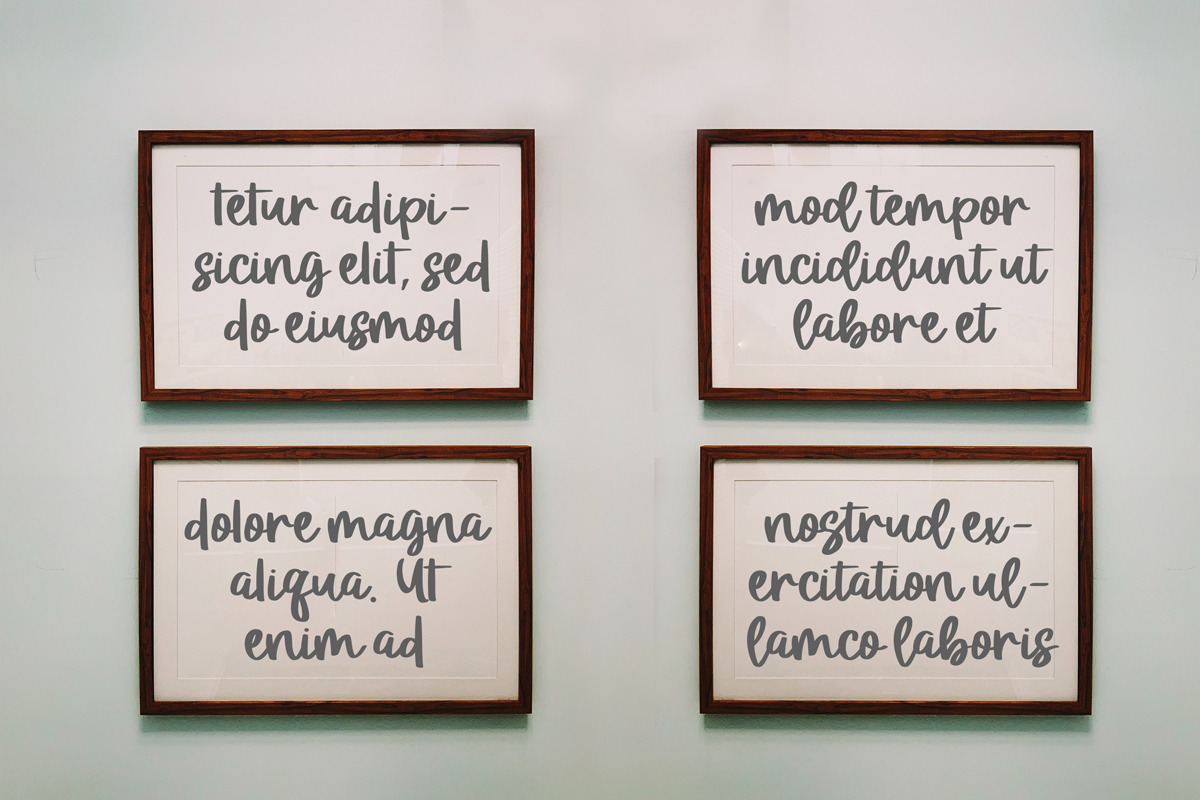 tetur adipi-
sicing elit, sed
do eiusmod
mod tempor
incididunt ut
labore et
dolore magna
aliqua. Ut
enim ad
nostrud ex-
ercitation ul-
lamco laboris